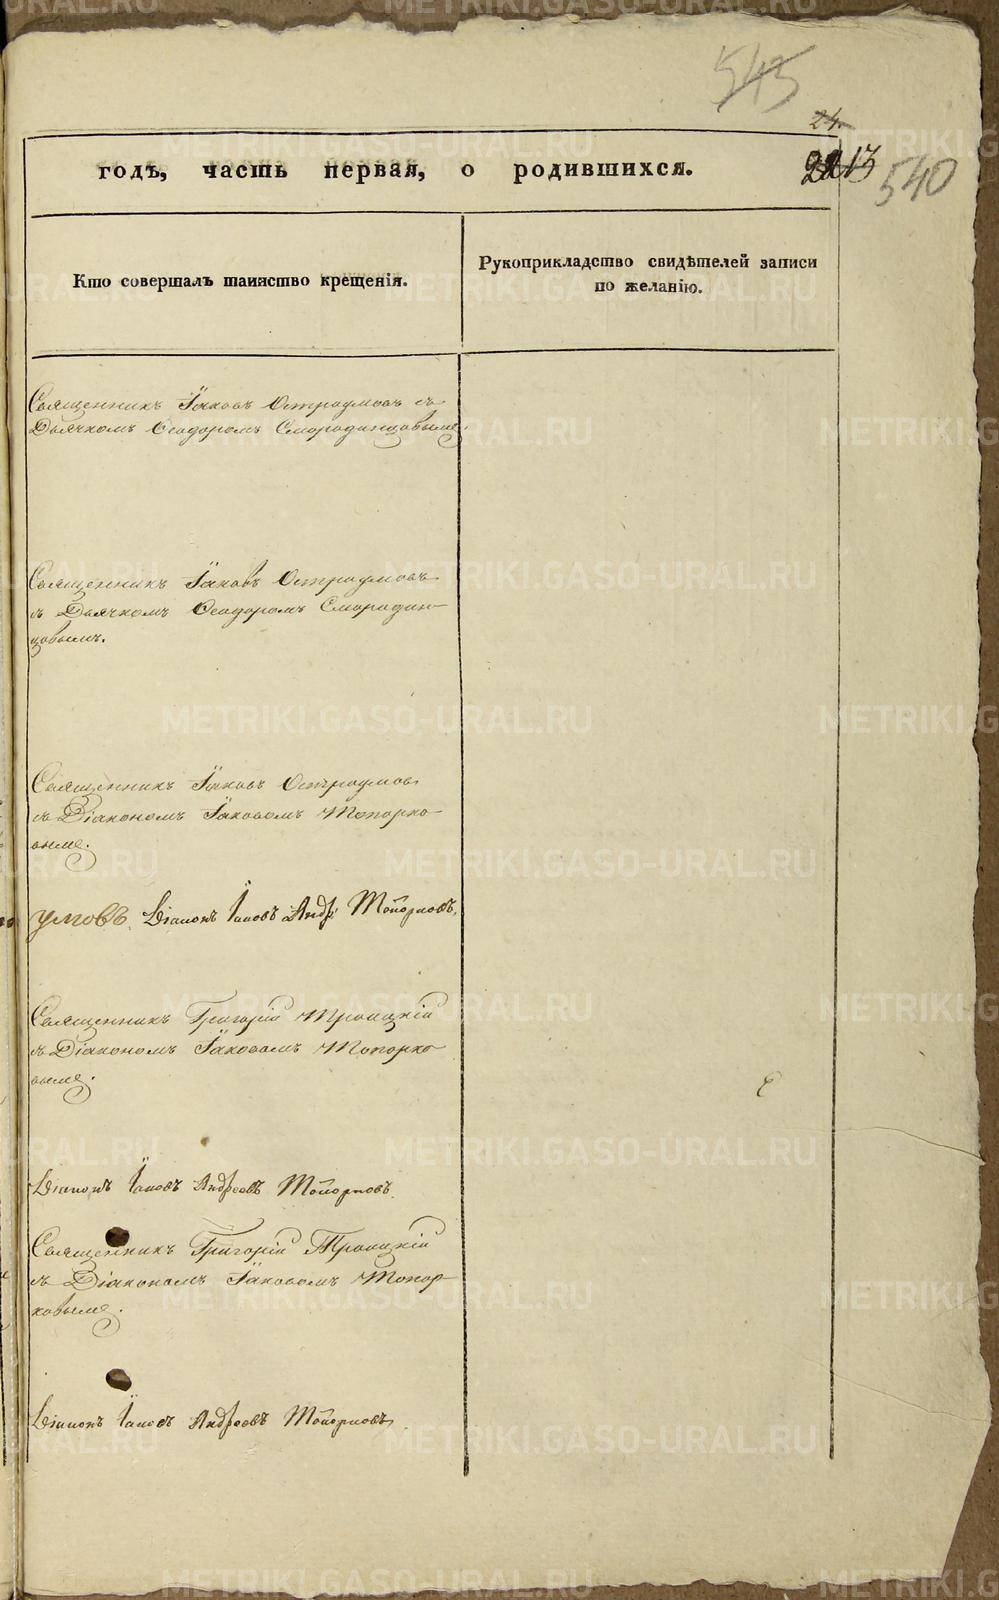 545
24
годъ, часть первая, о родившихся.
13
540
Кто совершалъ таинство крещенія.
Рукоприкладство свидѣтелей записи
по желанію.
Священникъ Іаковъ Остроумовъ съ
Дьячкомъ Ѳеодоромъ Смородинцовымъ.
Священникъ Іаковъ Остроумовъ
съ Дьячкомъ Ѳеодоромъ Смородин-
цовымъ.
Священникъ Іаковъ Остроумовъ
съ Діакономъ Іаковомъ Топорко-
вымъ.
умовъ. Діаконъ Іаковъ Андр: Топорковъ.
Священникъ Григорій Троицкій
съ Діакономъ Іаковомъ Топорко-
вымъ.
Діаконъ Іаковъ Андреевъ Топорковъ.
Священникъ Григорій Троицкій
съ Діакономъ Іаковомъ Топор-
ковымъ.
Діаконъ Іаковъ Андреевъ Топорковъ.
METRIKI.GASO-URAL.RU